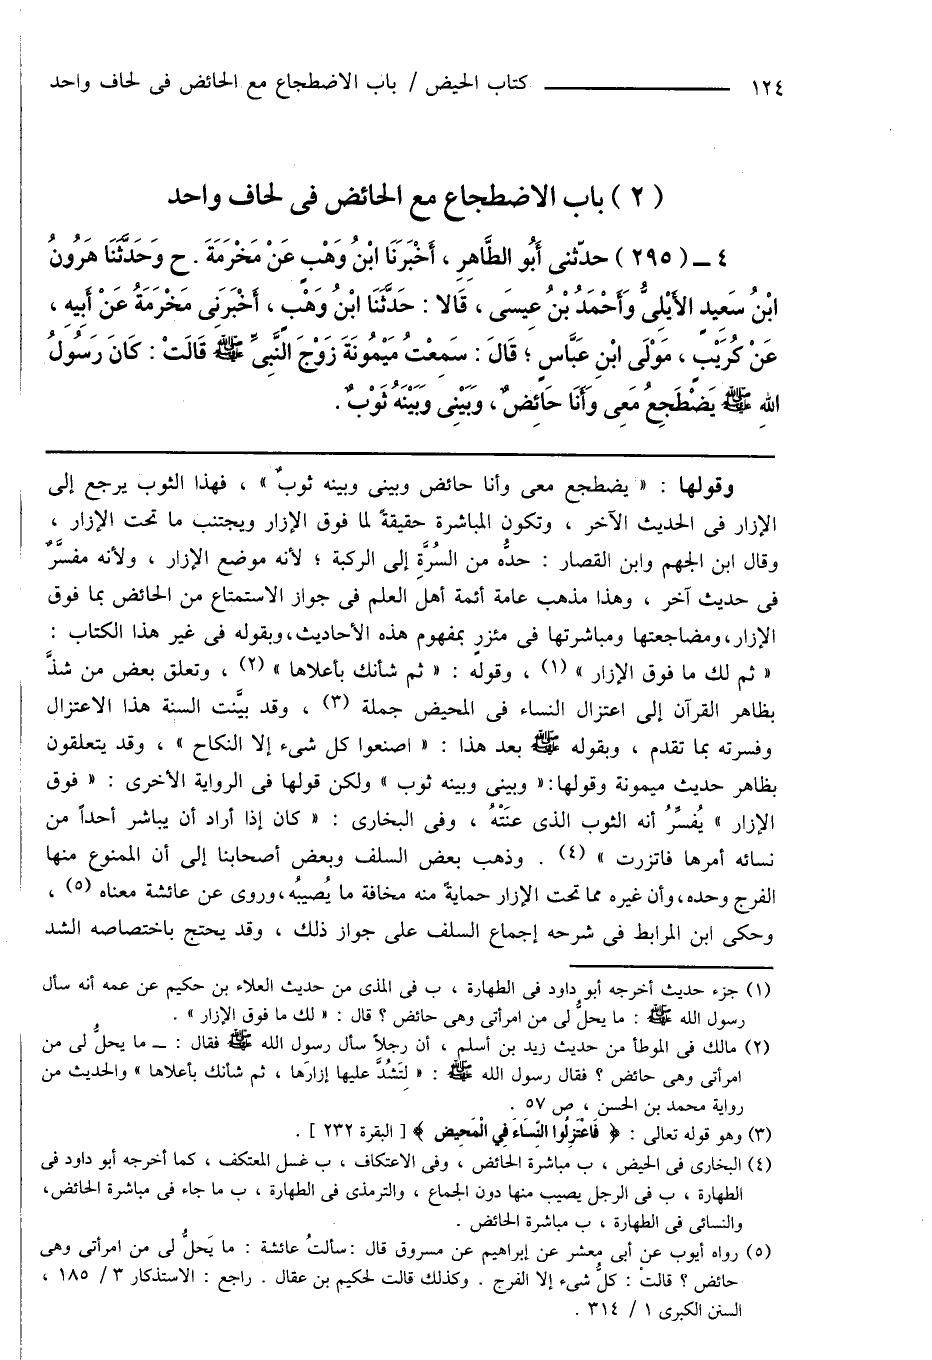 ١٢٤ ــــــــــــ كتاب الحيض / باب الاضطجاع مع الحائض فى لحاف واحد
( ٢ ) باب الاضطجاع مع الحائض فى لحاف واحد
٤ ــ ( ٢٩٥ ) حدّثنى أَبُو الطَّاهِرِ ، أَخْبَرَنَا ابْنُ وَهْبٍ عَنْ مَخْرَمَةَ . ح وَحَدَّثَنَا هَرُونُ
ابْنُ سَعِيدٍ الأَيْلِىُّ وَأَحْمَدُ بْنُ عِيسَى ، قَالا : حَدَّثَنَا ابْنُ وَهْبٍ ، أَخْبَرَنِى مَخْرَمَةُ عَنْ أَبِيهِ ،
عَنْ كُرَيْبٍ ، مَوْلَى ابْنِ عَبَّاسٍ ؛ قَالَ : سَمِعْتُ مَيْمُونَةَ زَوْجَ النَّبِىِّ ﷺ قَالَتْ : كَانَ رَسُولُ
اللهِ ﷺ يَضْطَجِعُ مَعِى وَأَنَا حَائِضٌ ، وَبَيْنِى وَبَيْنَهُ ثَوْبٌ .
وقولها : « يضطجع معى وأنا حائض وبينى وبينه ثوبٌ » ، فهذا الثوب يرجع إلى
الإزار فى الحديث الآخر ، وتكون المباشرة حقيقةً لما فوق الإزار ويجتنب ما تحت الإزار ،
وقال ابن الجهم وابن القصار : حدُّه من السُرَّةِ إلى الركبة ؛ لأنه موضع الإزار ، ولأنه مفسَّرٌ
فى حديث آخر ، وهذا مذهب عامة أئمة أهل العلم فى جواز الاستمتاع من الحائض بما فوق
الإزار،ومضاجعتها ومباشرتها فى مئزرٍ بمفهوم هذه الأحاديث،وبقوله فى غير هذا الكتاب :
« ثم لك ما فوق الإزار » (١) ، وقوله : « ثم شأنك بأعلاها » (٢) ، وتعلق بعض من شذَّ
بظاهر القرآن إلى اعتزال النساء فى المحيض جملة (٣) ، وقد بيَّنت السنة هذا الاعتزال
وفسرته بما تقدم ، وبقوله ﷺ بعد هذا : « اصنعوا كل شىء إلا النكاح » ، وقد يتعلقون
بظاهر حديث ميمونة وقولها:« وبينى وبينه ثوب » ولكن قولها فى الرواية الأخرى : « فوق
الإزار » يُفسِّرُ أنه الثوب الذى عنَتْهُ ، وفى البخارى : « كان إذا أراد أن يباشر أحداً من
نسائه أمرها فاتزرت » (٤) . وذهب بعض السلف وبعض أصحابنا إلى أن الممنوع منها
الفرج وحده،وأن غيره مما تحت الإزار حمايةً منه مخافة ما يُصيبُه،وروى عن عائشة معناه (٥) ،
وحكى ابن المرابط فى شرحه إجماع السلف على جواز ذلك ، وقد يحتج باختصاصه الشد
(١) جزء حديث أخرجه أبو داود فى الطهارة ، ب فى المذى من حديث العلاء بن حكيم عن عمه أنه سأل
رسول الله ﷺ : ما يحلُّ لى من امرأتى وهى حائض ؟ قال : « لك ما فوق الإزار » .
(٢) مالك فى الموطأ من حديث زيد بن أسلم ، أن رجلاً سأل رسول الله ﷺ فقال : ــ ما يحلُّ لى من
امرأتى وهى حائض ؟ فقال رسول الله ﷺ : « لتَشُدَّ عليها إزارَها ، ثم شأنك بأعلاها » والحديث من
رواية محمد بن الحسن ، ص ٥٧ .
(٣) وهو قوله تعالى : ﴿ فَاعْتَزِلُوا النِّسَاءَ فِي الْمَحِيضِ ﴾ [ البقرة ٢٣٢ ] .
(٤) البخارى فى الحيض ، ب مباشرة الحائض ، وفى الاعتكاف ، ب غسل المعتكف ، كما أخرجه أبو داود فى
الطهارة ، ب فى الرجل يصيب منها دون الجماع ، والترمذى فى الطهارة ، ب ما جاء فى مباشرة الحائض،
والنسائى فى الطهارة ، ب مباشرة الحائض .
(٥) رواه أيوب عن أبى معشر عن إبراهيم عن مسروق قال :سألتُ عائشة : ما يَحلُّ لى من امرأتى وهى
حائض ؟ قالتْ : كلُّ شىء إلا الفرج . وكذلك قالت لحكيم بن عقال . راجع : الاستذكار ٣ / ١٨٥ ،
السنن الكبرى ١ / ٣١٤ .